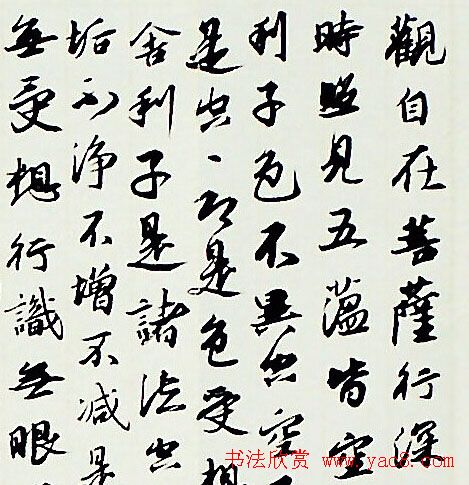 觀自在菩薩行深
時照見五蘊皆空
利子色不異空空不
是空丶即是色受想
舍利子是諸法空
垢不淨不增不減是
無受想行識無眼
书法欣赏 www.yac8.com